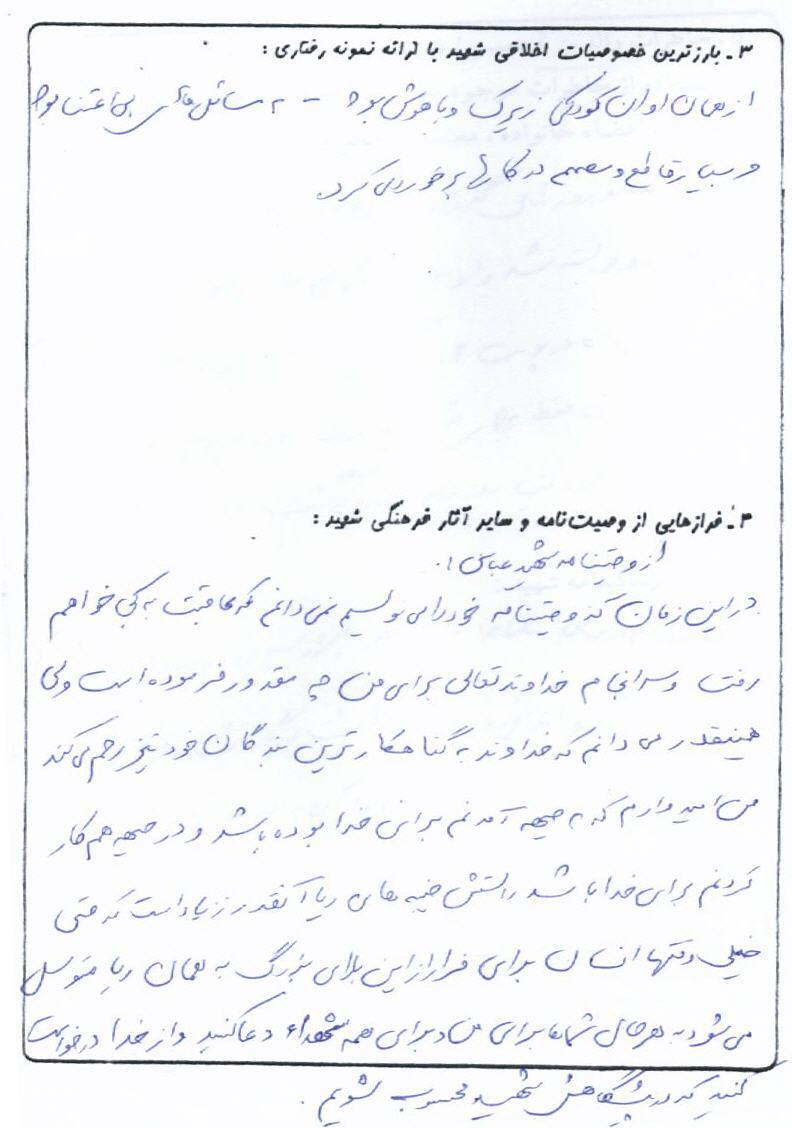 ۳ـ بارزترین خصوصیات اخلاقی شهید با ارائه نمونه رفتاری :
از همان اوان کودکی زیرک و باهوش بود – به مسائل مادی بی اعتنا بود
و بسیار قاطع و مصمم در کارها برخورد می کرد.
۴ـ فرازهایی از وصیت‌نامه و سایر آثار فرهنگی شهید :
از وصیتنامه شهید عباس :
در این زمان که وصیتنامه خود را می نویسم نمی دانم که عاقبت به کجا خواهم
رفت و سرانجام خداوند تعالی برای من چه مقدور فرموده است ولی
همینقدر می دانم که خداوند به گناهکارترین بندگان خود نیز رحم می کند
من امیدوارم که به جبهه آمدنم برای خدا بوده باشد و در جبهه هم کار
کردنم برای خدا باشد راستش جنبه های ریا آنقدر زیاد است که حتی
خیلی وقتها انسان برای فرار از این بلای بزرگ به همان ریا متوسل
می شود به هر حال شماها برای من و برای همه شهداء دعا کنید و از خدا درخواست
کنید که در پیشگاهش شهید محسوب شویم .